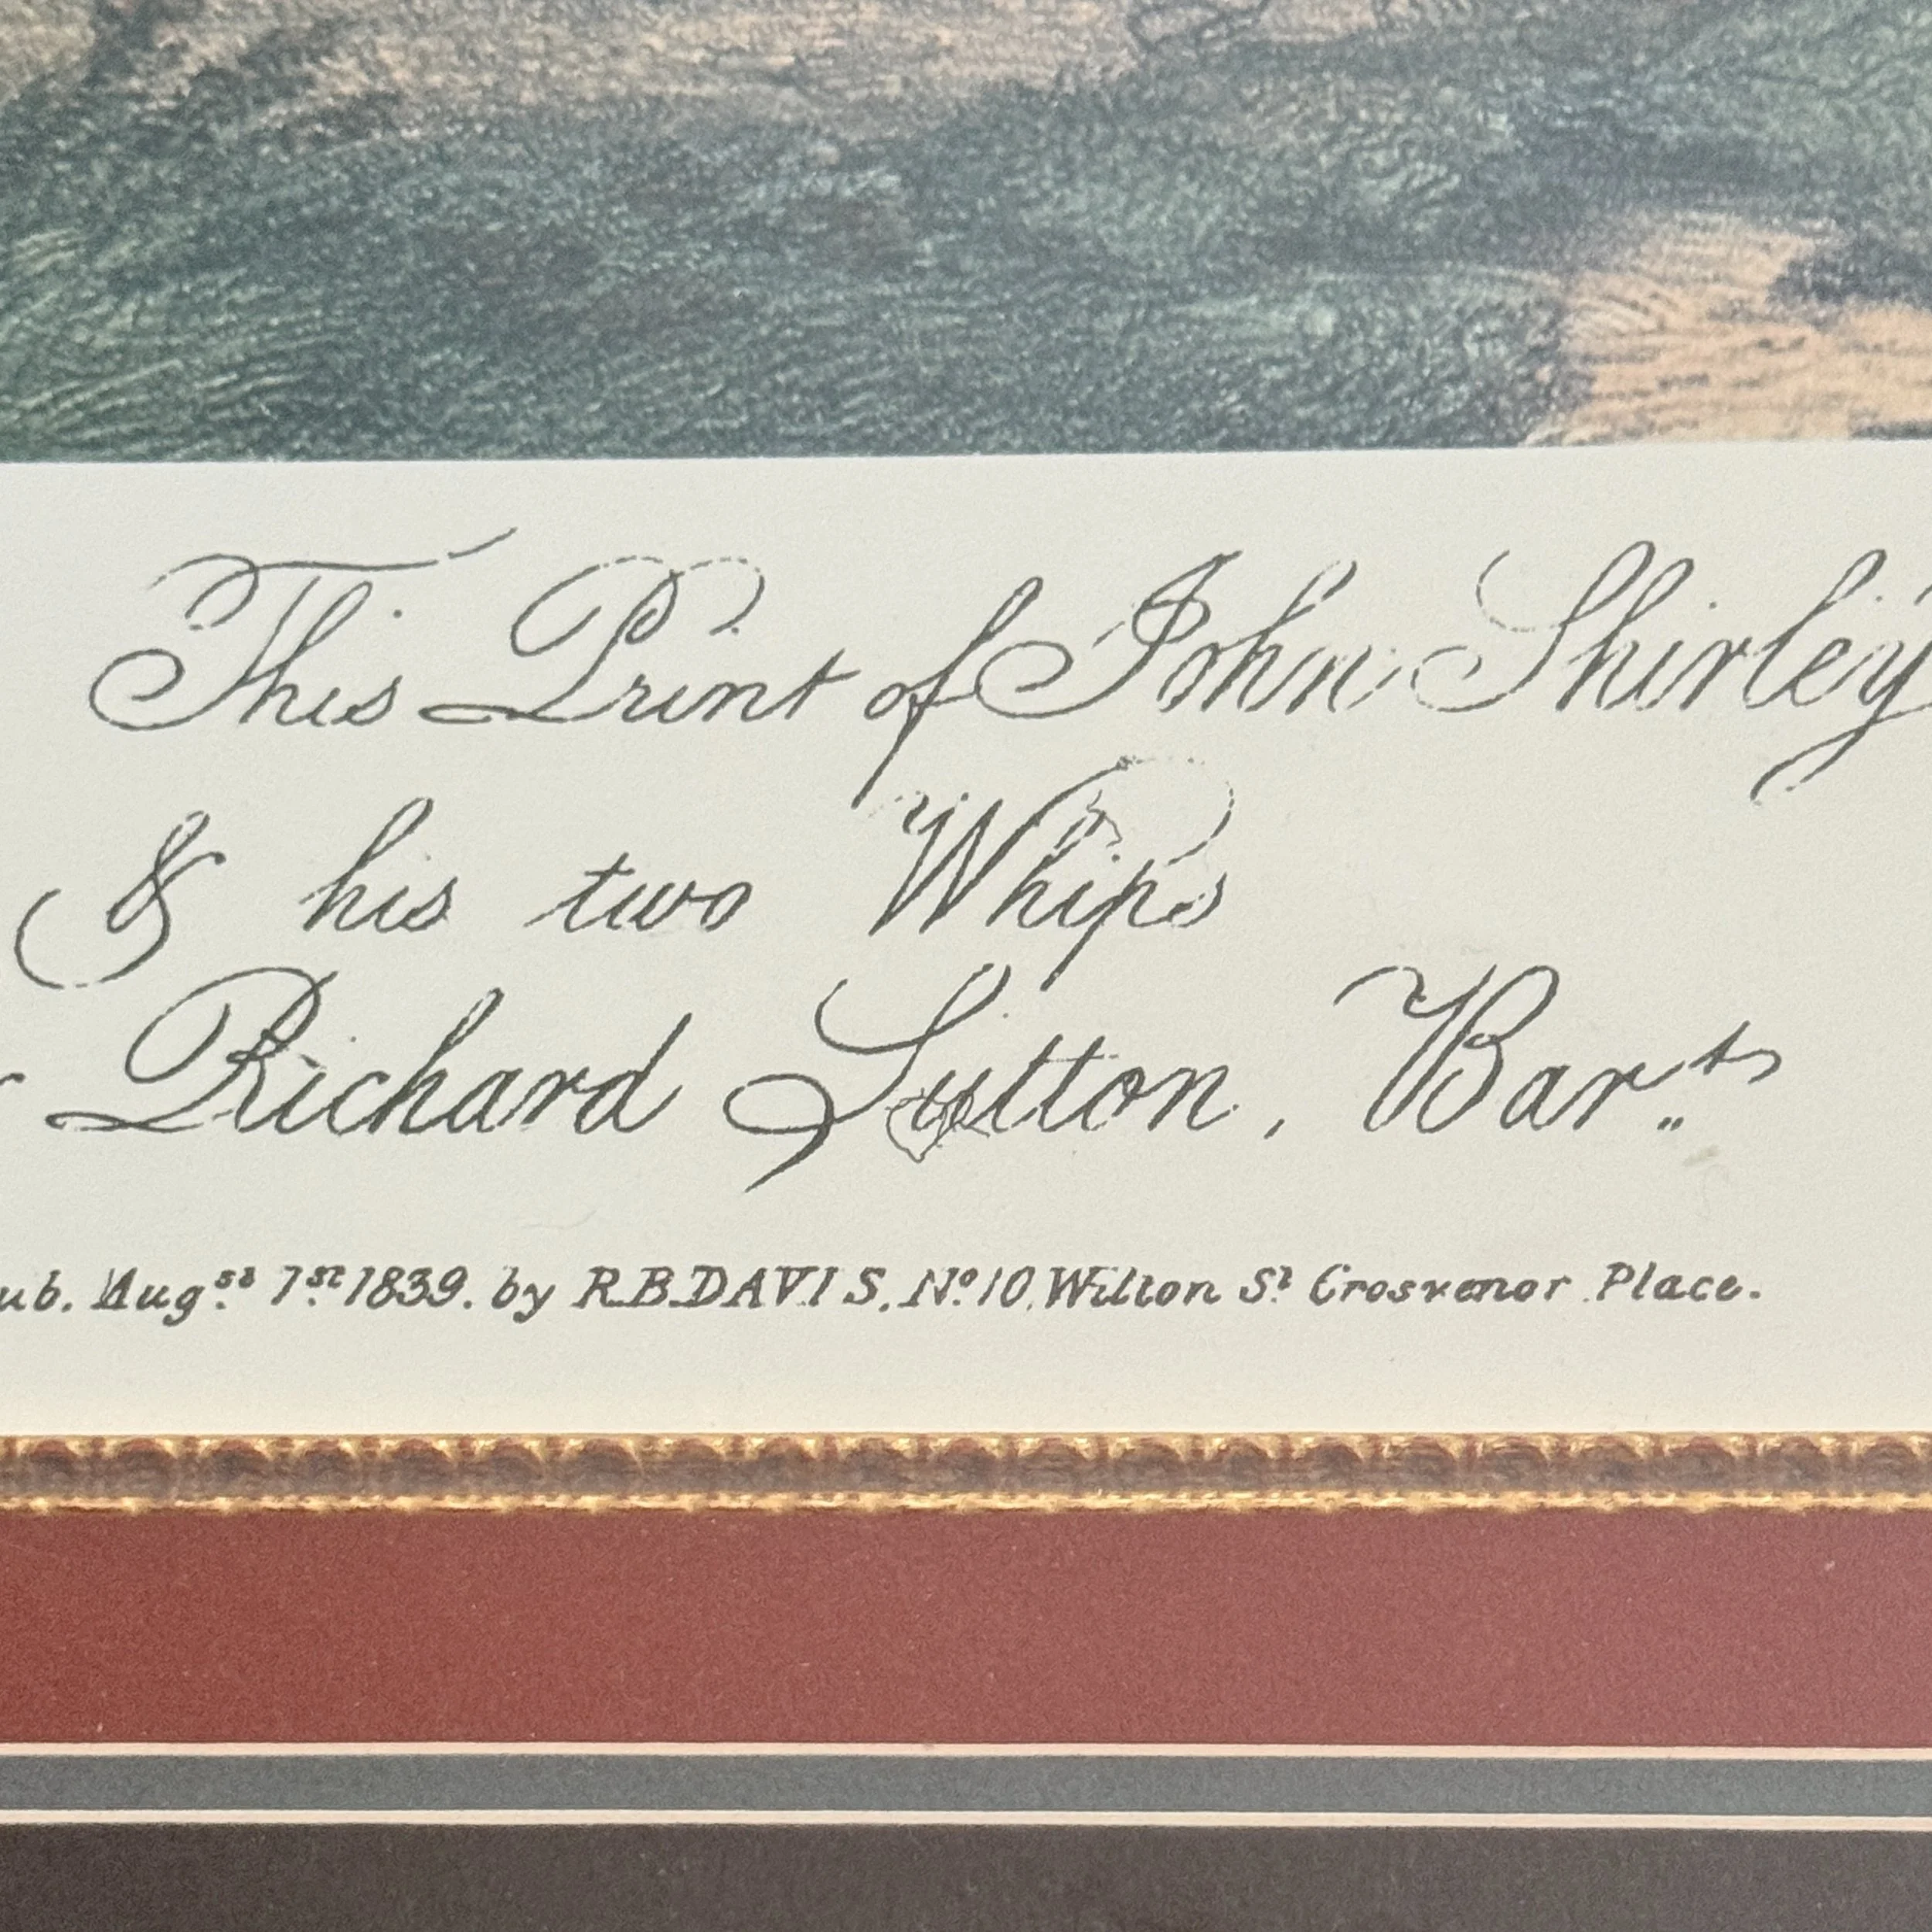 This Print of John Shirley
& his two Whips
Richard Sutton, Bar.ts
ub. Aug.st 1.st 1839. by R.B.DAVIS. No.10. Wilton St. Grosvenor Place.